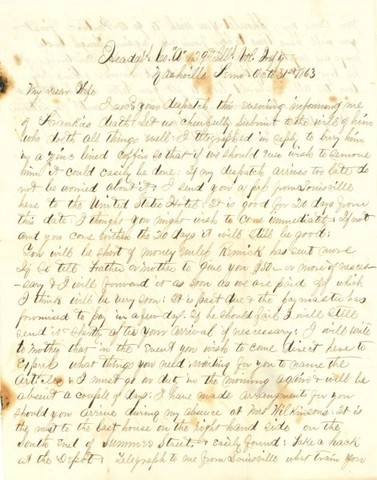 Headqrs Co. "A" 129th Ills Vol Infty
Nashville Tenn Oct 31st 1863
My dear Wife
I recd your dispatch this evening informing me
of Frankies death. Let us cheerfully submit to the will of him
who doeth all things well. I telegraphed in reply to bury him
in a zinc lined coffin so that if we should ever wish to remove
him it could easily be done. If my dispatch arrives too late do
not be worried about it. I send you a pass from Louisville
here to the United States Hotel. It is good for 20 days from
this date. I thought you might wish to come immediately. If not
and you come within the 20 days it will still be good.
You will be short of money unless has sent more
If so tell Father or Mother to give you or more if neces-
sary & I will forward it as soon as we are paid off which
I think will be very soon. It is past due & the paymaster has
promised to pay in a few days. If he should fail I will still
send it after your arrival if necessary. I will write
to Mother that in the event you wish to come direct here to
what things you need making for you to name the
Articles. I must go on duty in the morning again & will be
absent a couple of days. I have made arrangements for you
should you arrive during my absence at Mrs Wilkinsons. It is
the next to the last house on the right hand side on the
South end of Summer Street & easily found. Take a hack
at the Depot. Telegraph to me from Louisville what train you